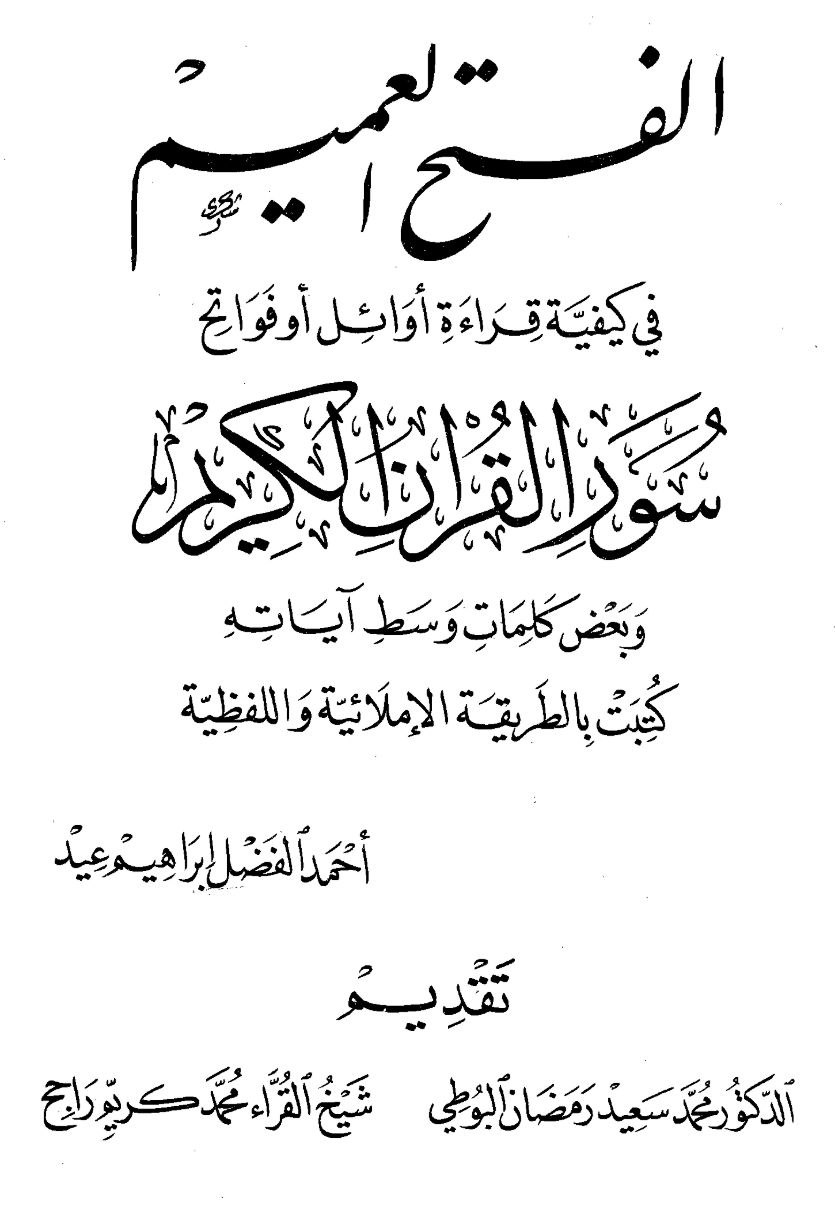 الفتح العميم
في كيفيَّة قِرَاءَةِ أوَائِل أو فَوَاتِح
سُوَرِ القُرآنِ الكَرِيمِ
وَبَعْض كَلِمَاتٍ وَسَطِ آيَاتِهِ
كُتِبَتْ بِالطَريقَة الإملَائيّة وَاللفظِيّة
أحْمَد الفَضْل إبرَاهِيم عِيد
تَقْدِيم
الدّكتُور مُحمَّد سَعِيد رَمَضَان البُوطِي
شَيْخُ القُرَّاء مُحمَّد كريّم رَاجِح